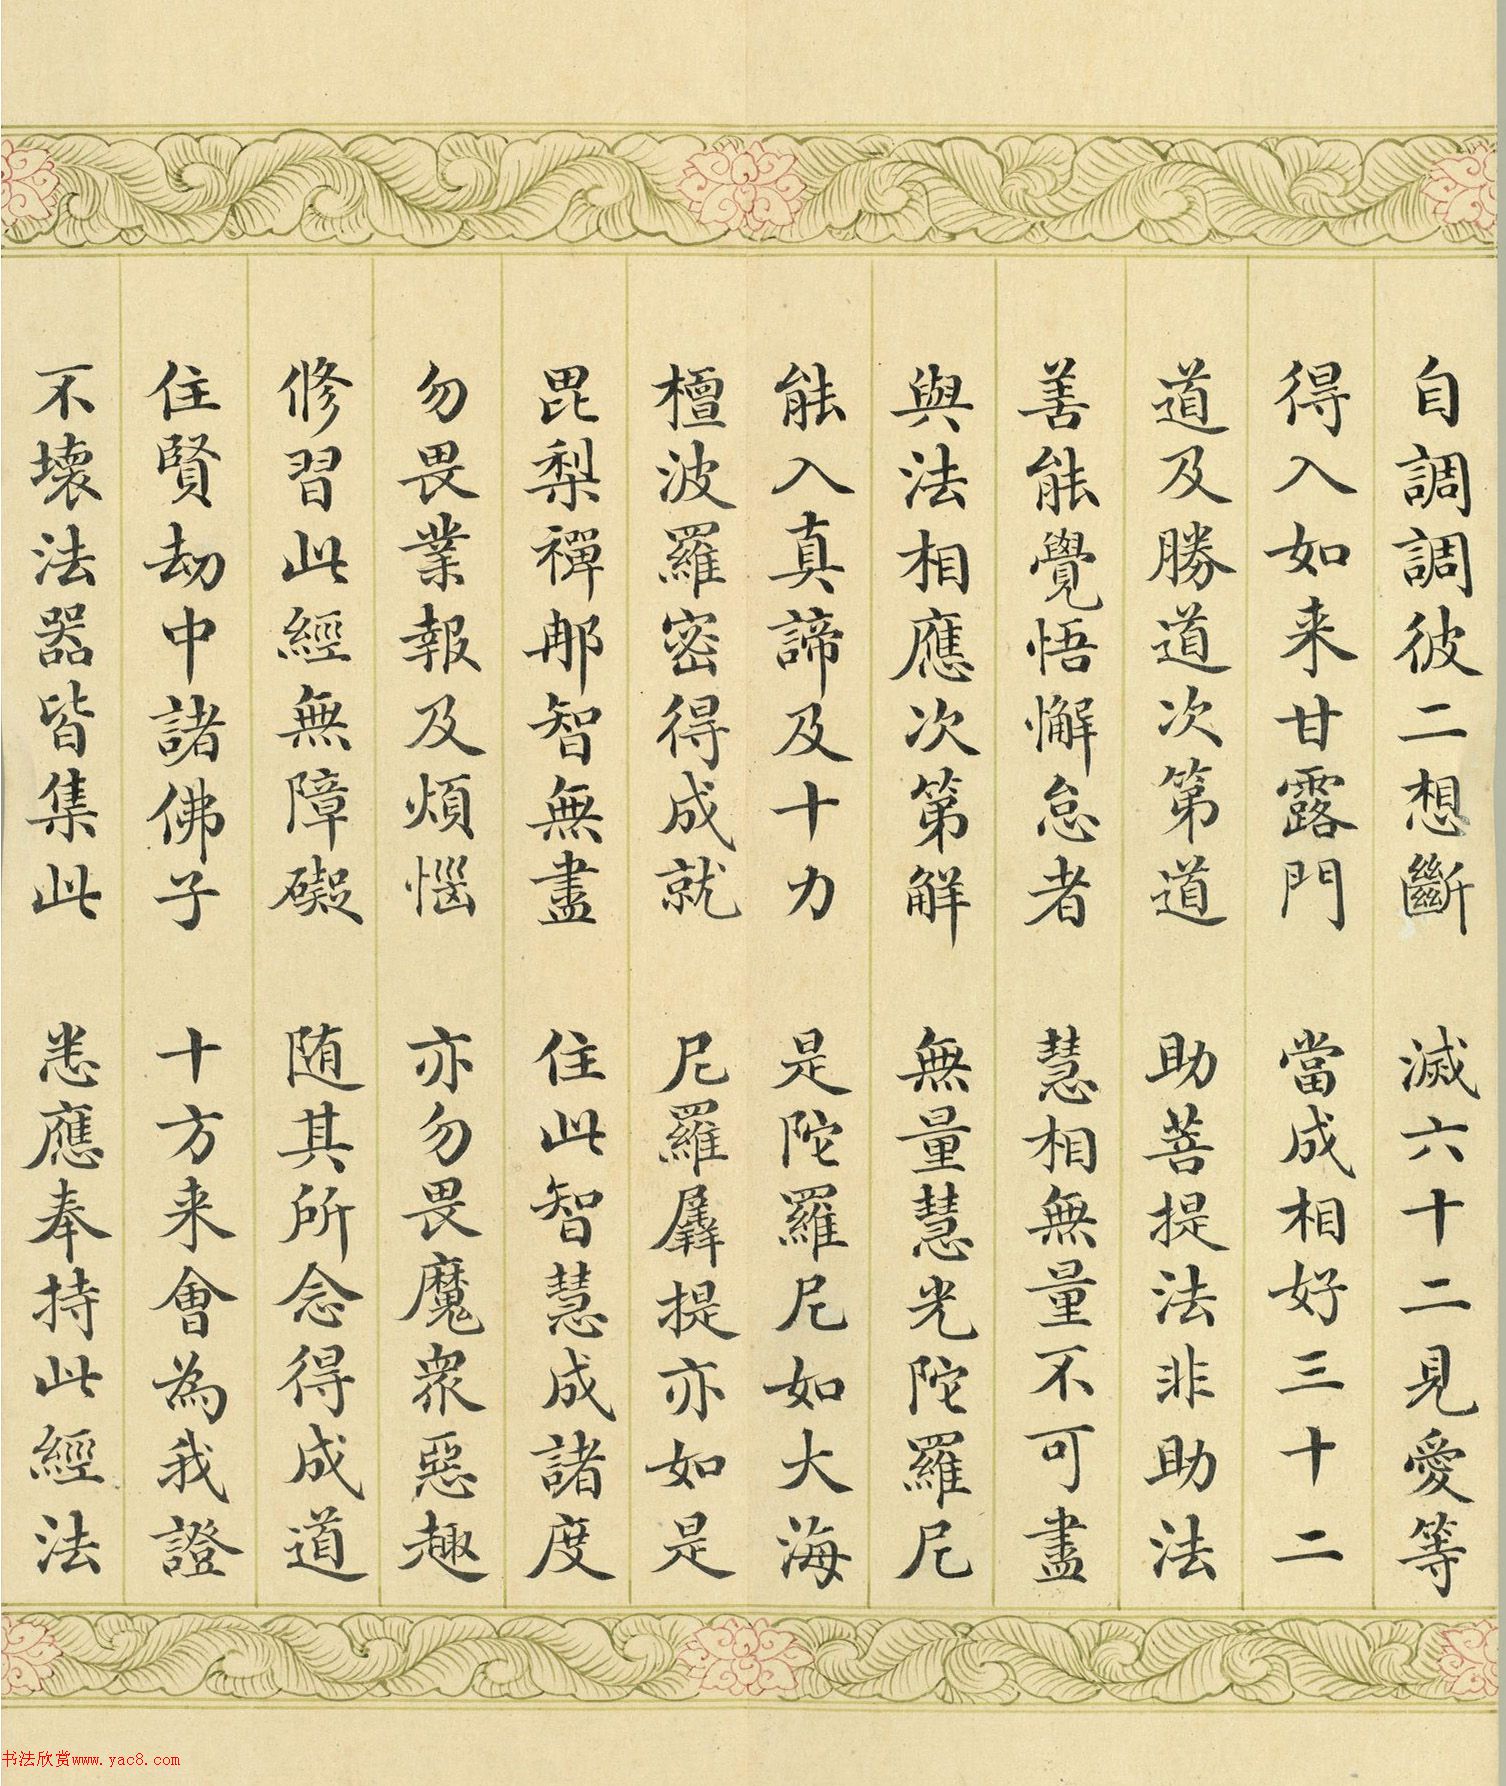 自調調彼二想斷　滅六十二見愛等
得入如来甘露門　當成相好三十二
道及勝道次第道　助菩提法非助法
善能覺悟懈怠者　慧相無量不可盡
與法相應次第解　無量慧光陀羅尼
能入真諦及十力　是陀羅尼如大海
檀波羅密得成就　尼羅羼提亦如是
毘梨禪那智無盡　住此智慧成諸度
勿畏業報及煩惱　亦勿畏魔眾惡趣
修習此經無障礙　随其所念得成道
住賢劫中諸佛子　十方来會為我證
不壞法器皆集此　悉應奉持此經法
书法欣赏www.yac8.com